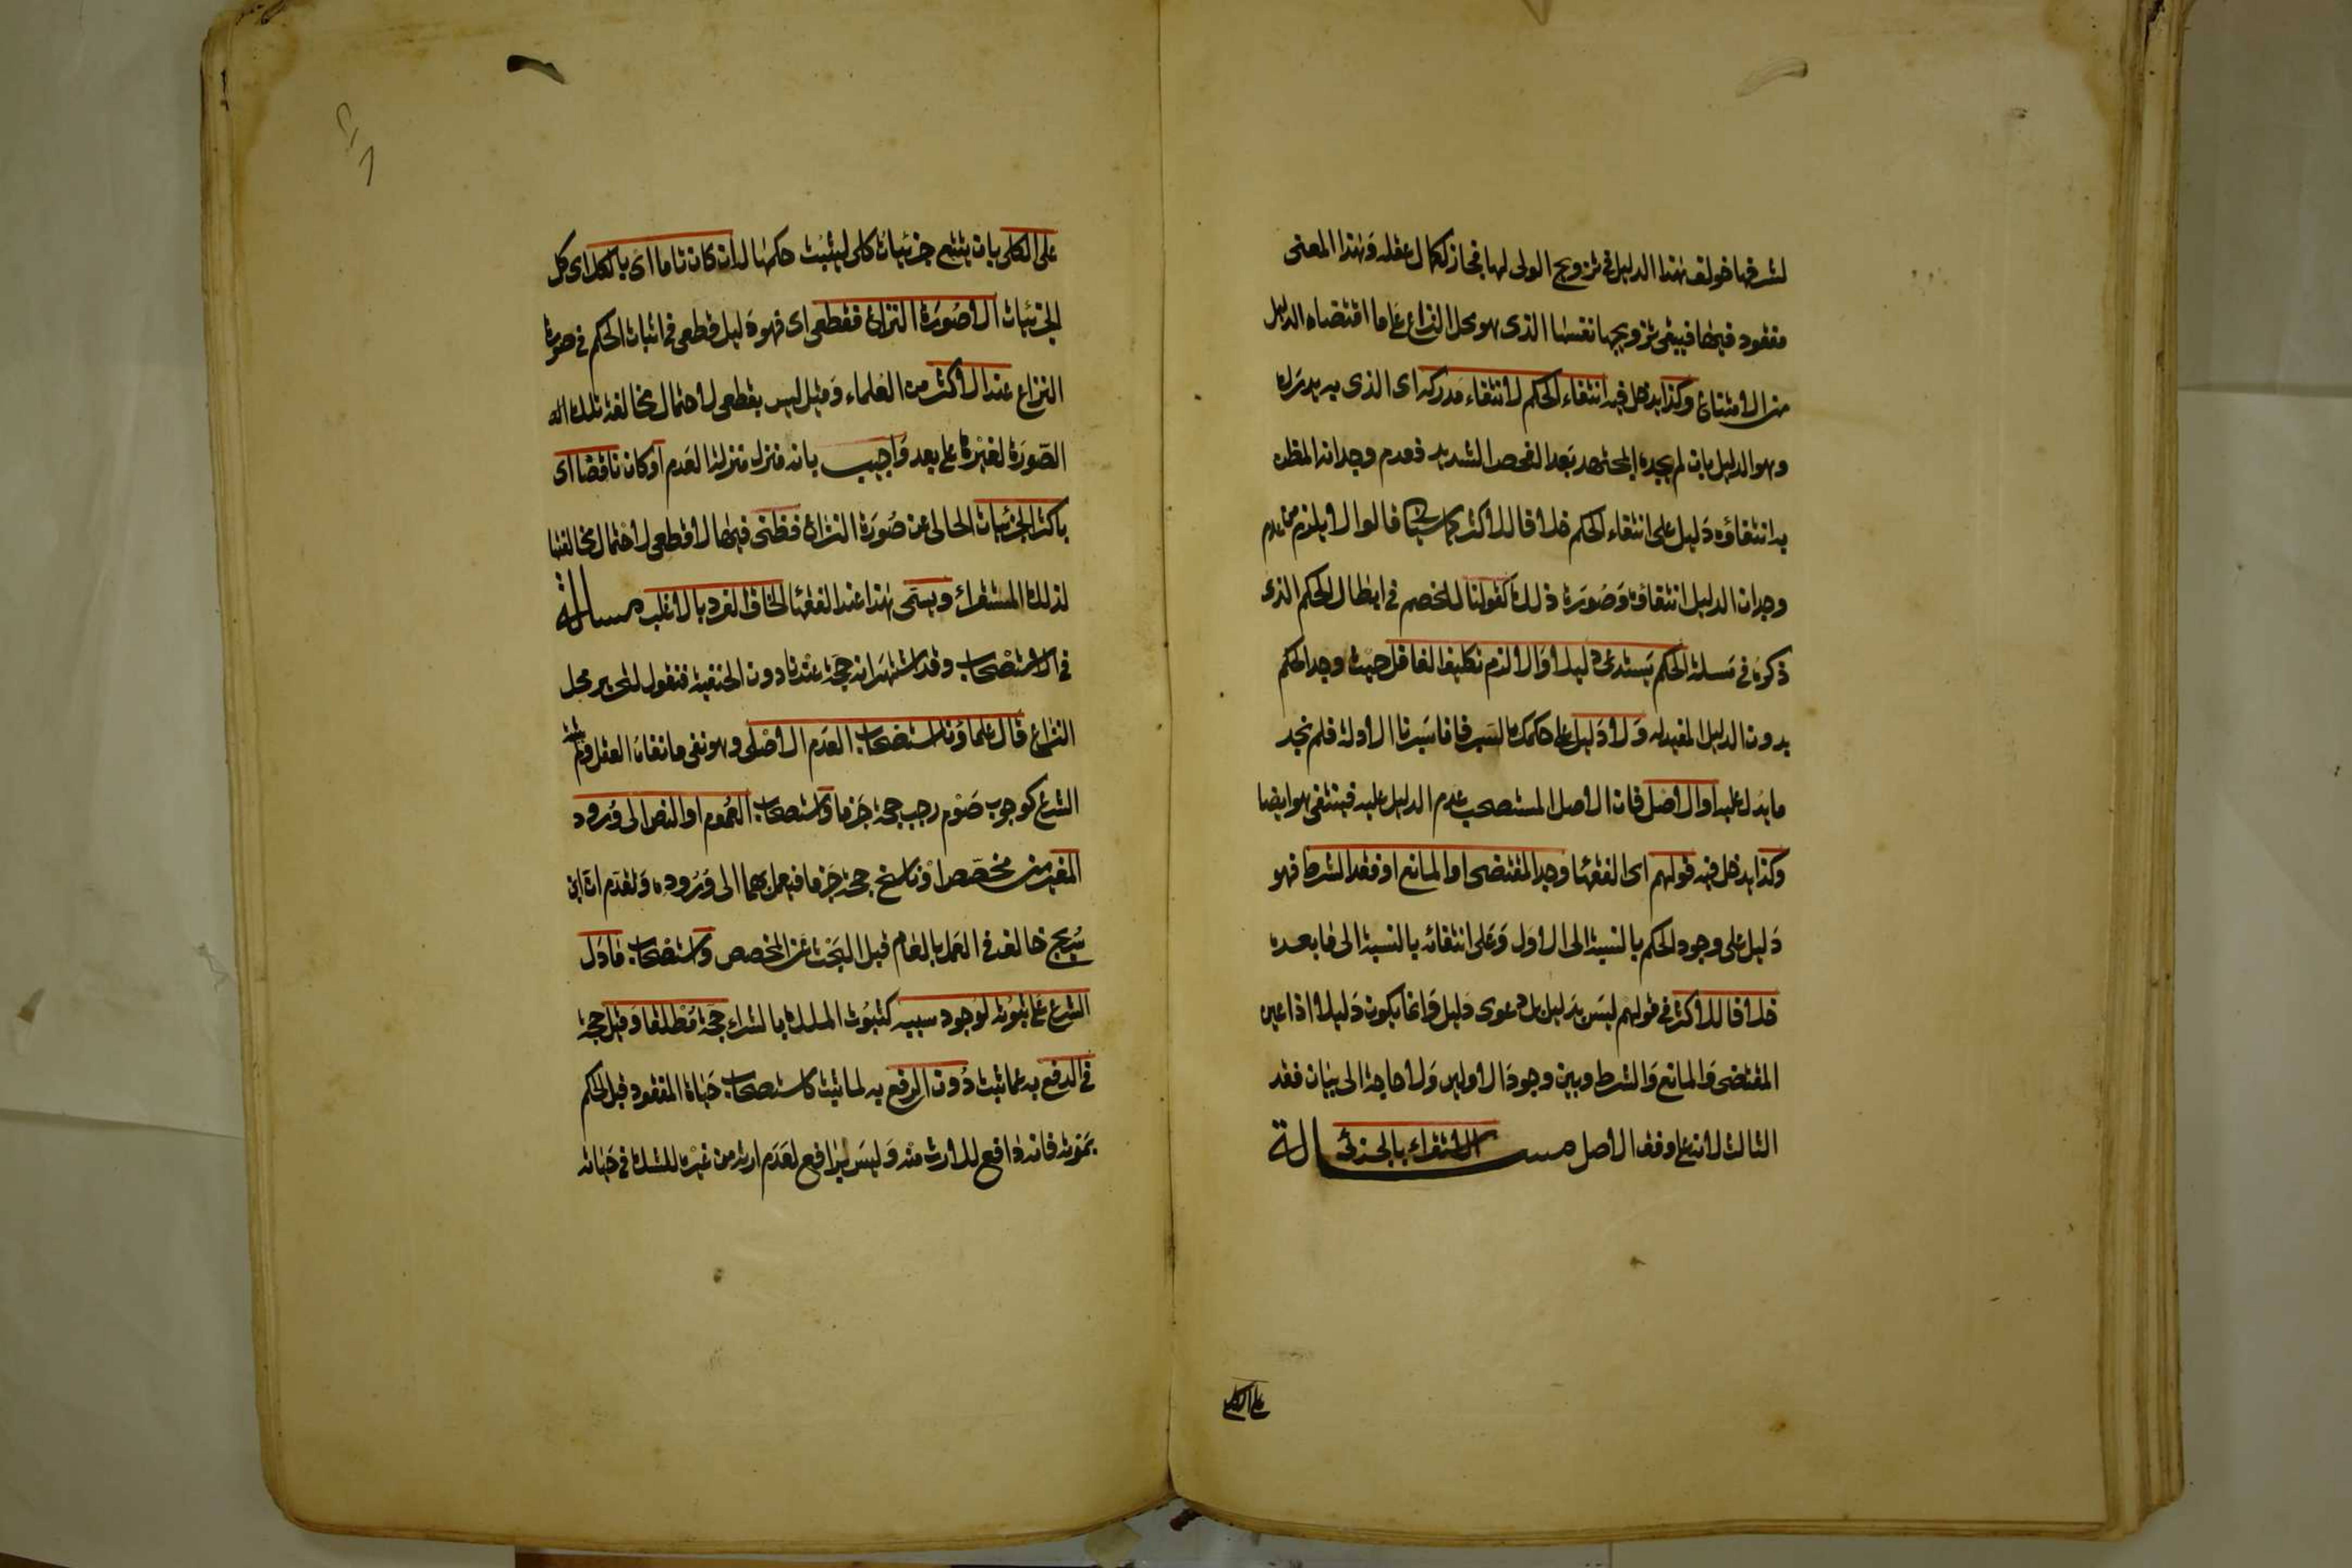 لشرفها خولف هذا الدليل في تزويج الولي لها فجاز لكمال عقله وهذا المعنى
مفقود فيها فيبقى تزويجها نفسها الذي هو محل النزاع على ما اقتضاه الدليل
من الامتناع وكذا يدخل فيه انتفاء الحكم لانتفاء مدركه اي الذي به يدرك
وهو الدليل بان لم يجده المجتهد بعد الفحص الشديد فعدم وجدانه المظن
به انتفاؤه دليل على انتفاء الحكم خلافا للاكثر قالوا لا يلزم من عدم
وجدان الدليل انتفاؤه وصورة ذلك كقولنا للخصم في ابطال الحكم الذي
ذكره في مسئلة الحكم يستدعي دليلا والا لزم تكليف الغافل حيث وجد الحكم
بدون الدليل المفيد له ولا دليل على حكمك بالسبر فانا سبرنا الادلة فلم نجد
ما يدل عليه او الاصل فان الاصل المستصحب عدم الدليل عليه فينتفي هو ايضا
وكذا يدخل فيه قولهم اي الفقها وجد المقتضي او المانع او فقد الشرط فهو
دليل على وجود الحكم بالنسبة الى الاول وعلى انتفائه بالنسبة الى ما بعده
خلافا للاكثر في قولهم ليس بدليل بل دعوى دليل وانما يكون دليلا اذا عين
المقتضي والمانع والشرط وبين وجود الاولين ولا حاجة الى بيان فقد
الثالث لانه على وفق الاصل مسالة الاستقراء بالجزئي
على الكلي
على الكلي بان يتتبع جزئيات كلي ليثبت حكمها له ان كان تاما اي بالكل اي كل
الجزئيات الا صورة النزاع فقطعي اي فهو دليل قطعي في اثبات الحكم في صورة
النزاع عند الاكثر من العلماء وقيل ليس بقطعي لاحتمال مخالفة تلك
الصورة لغيره على بعد واجيب بانه منزل منزلة العدم او كان ناقصا اي
باكثر الجزئيات الخالي عن صورة النزاع فظني فيها لا قطعي لاحتمال مخالفتها
لذلك المستقراء ويسمى هذا عند الفقها الحاق الفرد بالاغلب مسالة
في الاستصحاب وقد اشتهر انه حجة عندنا دون الحنفية فنقول لتحرير محل
النزاع قال علماؤنا استصحاب العدم الاصلي وهو نفي ما نفاه العقل ولم يثبته
الشرع كوجوب صوم رجب حجة جزما واستصحاب العموم او النص الى ورود
المغير من مخصص او ناسخ حجة جزما فيعمل بهما الى وروده وتقدم ان ابن
سريج خالف في العمل بالعام قبل البحث عن المخصص واستصحاب ما دل
الشرع على ثبوته لوجود سببه كثبوت الملك بالشراء حجة مطلقا وقيل حجة
في الدفع به عما ثبت دون الرفع به لما ثبت كاستصحاب حياة المفقود قبل الحكم
بموته فانه دافع للارث منه وليس برافع لعدم ارثه من غيره للشك في حياته